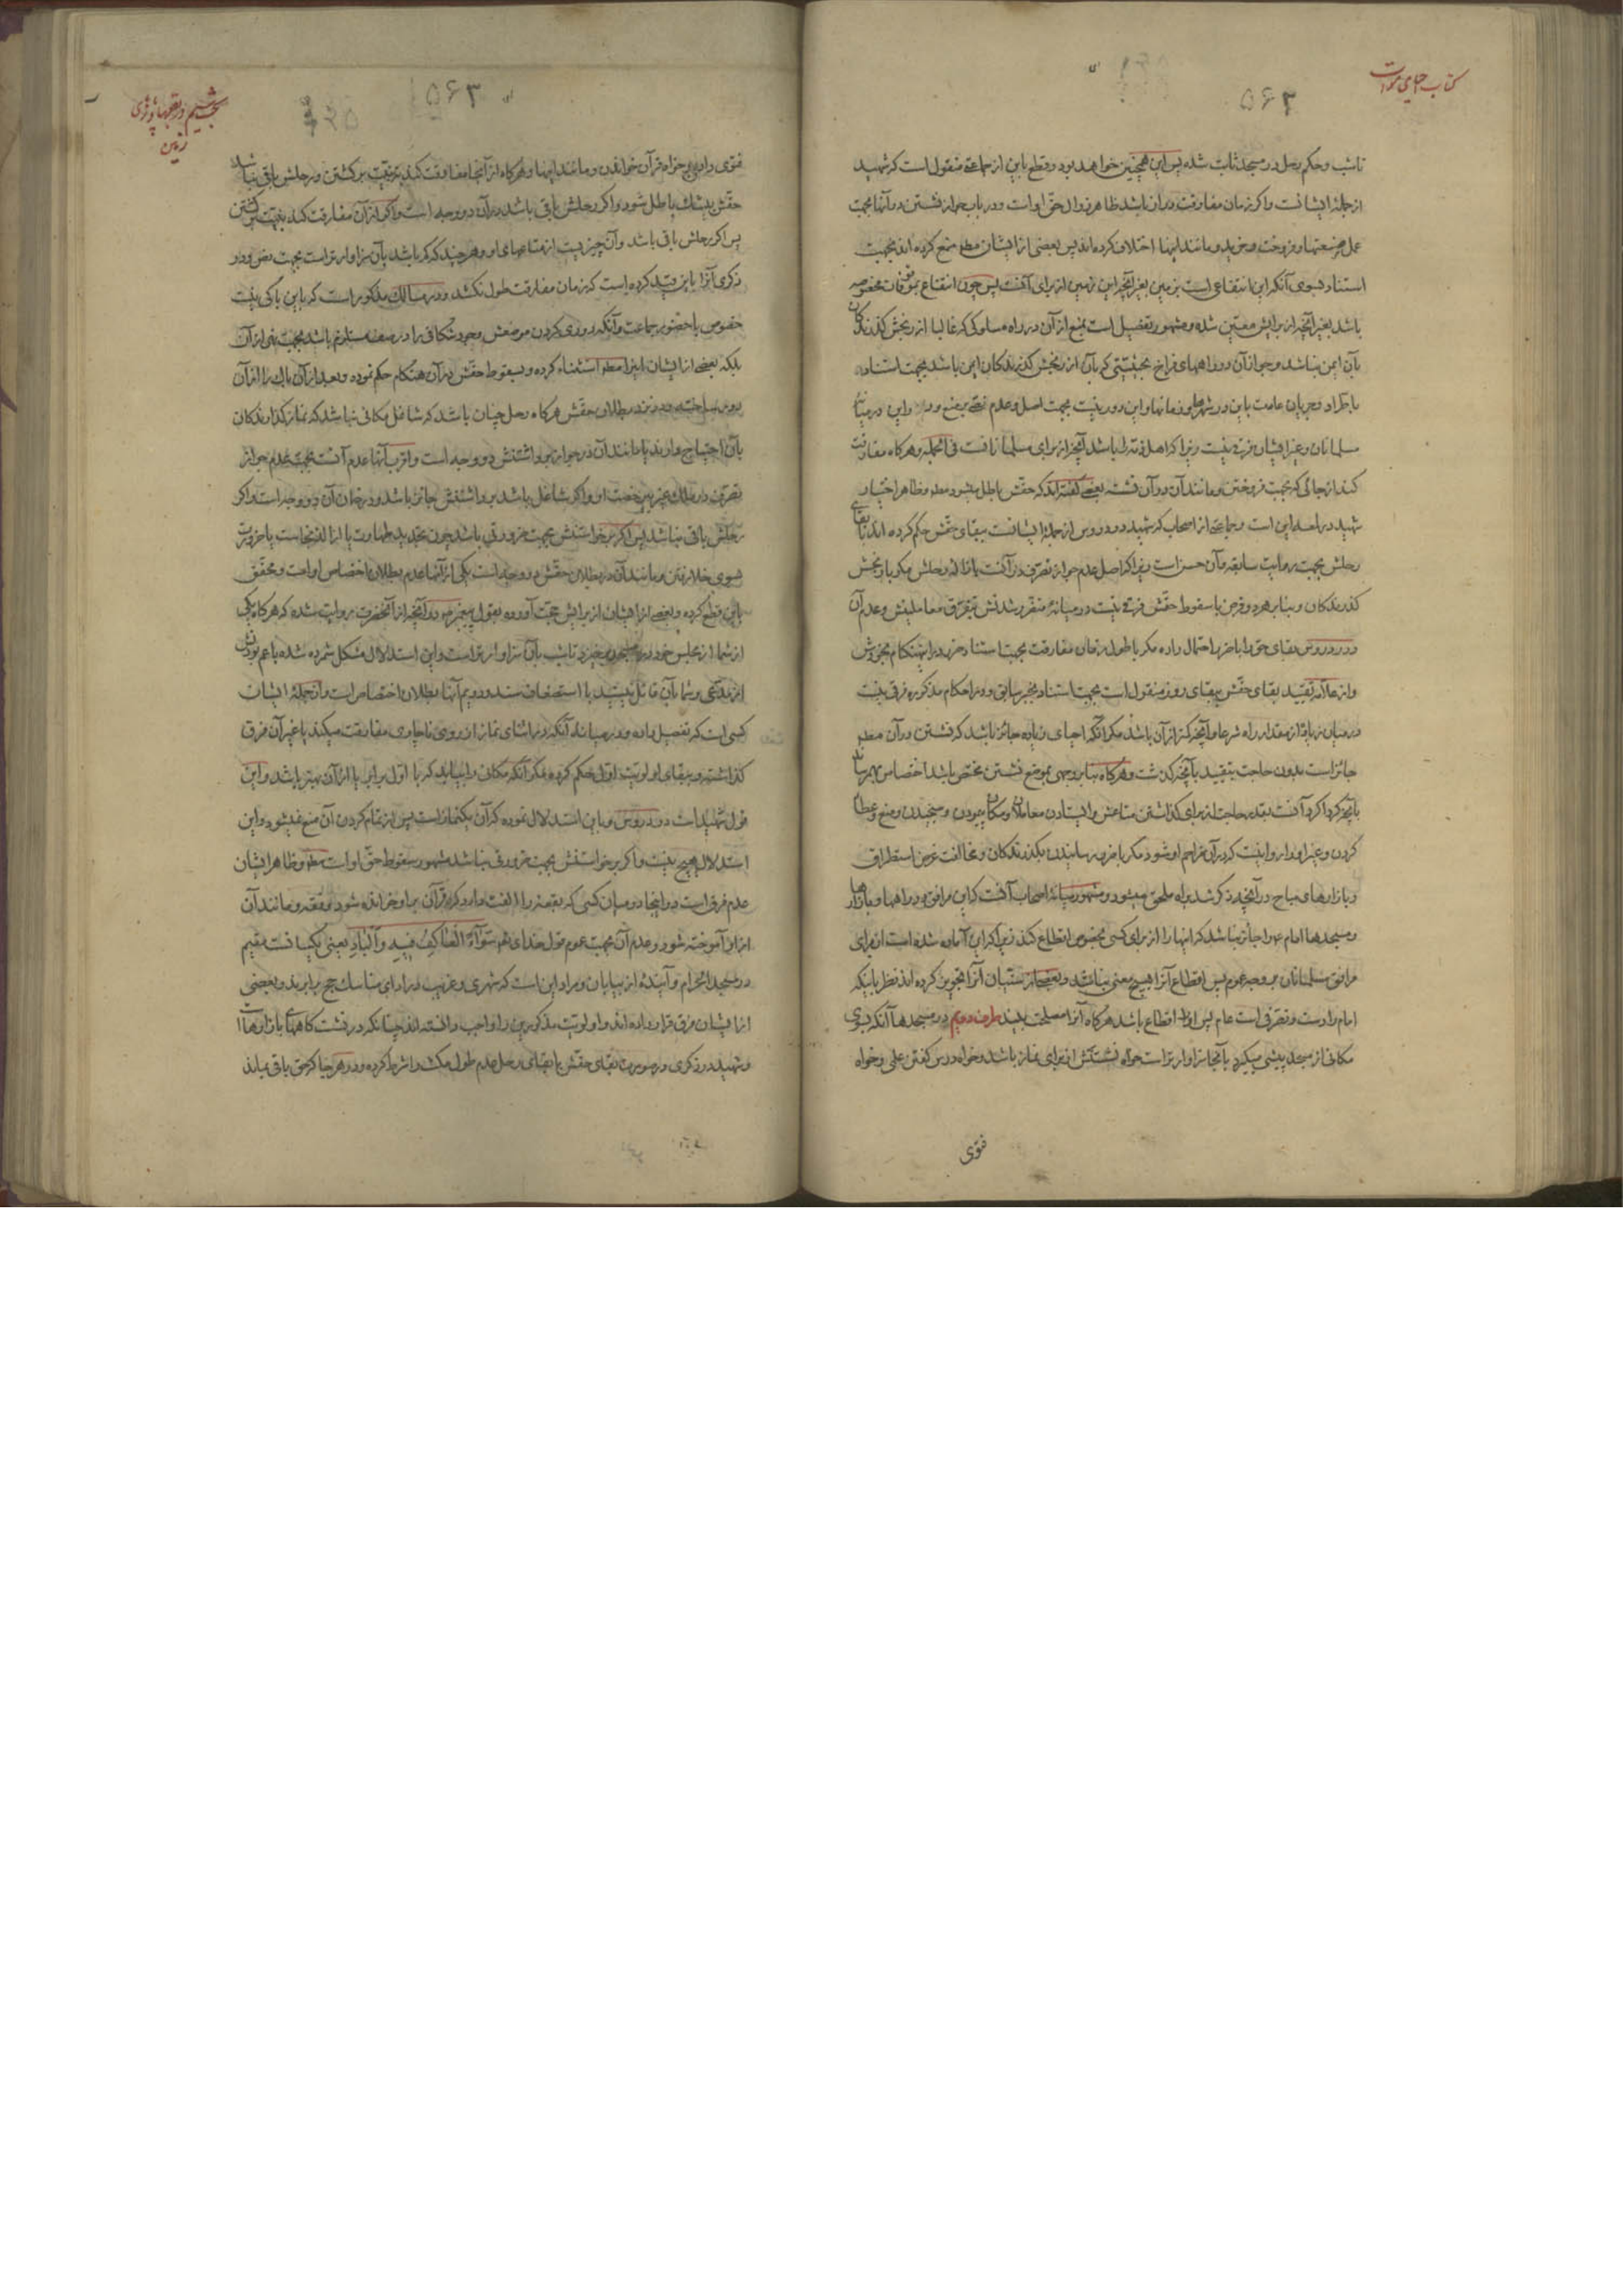 کتاب احیای موات
۵۶۳
تاشب وحکم رحل در مسجد ثابت شده پس این همچنین خواهد بود وقطع باین از جماعتی منقول است که شهید
از جملهٔ ایشانست واکر زمان مفارقت دران باشد ظاهر زوال حق اواست ودر باب جواز نشستن در آنها بجهت
عمل صنعتها وفروخت وخرید ومانند اینها اختلاف کرده اند پس بعضی از ایشان مطم منع کرده اند بجهت
استناد بسوی آنکه این انتفاعی است بزمین بغیر آنچه این زمین از برای آنست پس چون انتفاع بموقوفات مخصوصه
باشد بغیر آنچه از برایش معین شده ومشهور تفصیل است بمنع از آن در راه مسلوکی که غالبا از رنجش کذرندکان
بآن ایمن نباشد وجواز آن در راههای فراخ بحیثیتی که بآن از رنجش کذرندکان ایمن باشد بجهت استناد
باطراد وجریان عادت باین در شهرها وزمانها واین دور نیست بجهت اصل وعدم نصی بر منع ودر این درمیان
مسلمانان وغیر ایشان فرقی نیست زیرا که اهل ذمه را باشد آنچه از برای مسلمانانست فی الجمله وهرکاه مفارقت
کند از جائی که بجهت فروختن ومانند آن در آن نشسته بعضی کفته اند که حقش باطل میشود مطم وظاهر اختیار
شهید در لمعه این است وجماعتی از اصحاب که شهید در دروس از جملهٔ ایشانست ببقای حقش حکم کرده اند با بقای
رحلش بجهت روایت سابقه وآن حسن است زیرا که اصل عدم جواز تصرف در آنست بازالهٔ رحلش مکر با رنجش
کذرندکان وبنا بر هر دو فرض با سقوط حقش فرقی نیست در میانهٔ متضرر شدنش بتفرق معاملینش وعدم آن
ودر دروس بقای حق را با ضرر احتمال داده مکر با طول زمان مفارقت بجهت استناد ضرر در اینهنکام بخودش
واز علامه تقیید بقای حقش ببقای روز منقول است بجهت استناد بخبر سابق ودر احکام مذکوره فرقی نیست
در میان زیاده از مقدار راه شرعا وآنچه کمتر از آن باشد مکر آنکه احیای زیاده جائز باشد که نشستن در آن مطم
جائز است بدون حاجت بتقیید بآنچه کذشت وهرکاه بنا بر وجهی بموضع نشستن مختص باشد اختصاص بهم رساند
بآنچه کرداکرد آنست بقدر حاجت از برای کذاشتن متاعش وایستادن معاملان ومکان پیمودن وسنجیدن ومنع وعطا
کردن وغیر او را روا نیست که در آن مزاحم او شود مکر با ضرر رسانیدن بکذرندکان ومخالفت غرض استطراق
وبازارهای مباح در آنچه ذکر شد براه ملحق میشود ومشهور میانهٔ اصحاب آنست که این مرافق ودر راهها وبازارها
ومسجدها امام ع را جائز نباشد که اینها را از برای کسی بخصوص اقطاع کند زیرا که این آماده شده است از برای
مرافق مسلمانان بر وجه عموم پس اقطاع آنرا هیچ معنی نباشد وبعضی از سنیان آنرا تجویز کرده اند نظر باینکه
امام را دست وتصرفی است عام پس او را اقطاع باشد هرکاه آنرا مصلحت بیند طرف دویم در مسجدها آنکه بسوی
مکانی از مسجد پیشی میکیرد بآنجا سزاوارتر است خواه نشستنش از برای نماز باشد وخواه درس کفتن علمی وخواه
فتوی
بحث ششم در بقعهای وقفی
زمین
۵۶۳
فتوی دادن وخواه قرآن خواندن ومانند اینها وهرکاه از آنجا مفارقت کند بی نیت برکشتن ورحلش باقی نباشد
حقش بیشك باطل شود واکر رحلش باقی باشد در آن دو وجه است واکر از آن مفارقت کند بنیت برکشتن
پس اکر رحلش باقی باشد وآن چیزیست از متاعهای او وهر چند که کم باشد بآن سزاوارتر است بجهت نص ودر
ذکری آنرا باین قید کرده است که زمان مفارقت طول نکشد ودر مسالك مذکور است که باین باکی نیست
خصوص با حضور جماعت وآنکه دوری کردن موضعش وجود شکافی را در صف مستلزم باشد بجهت نهی از آن
بلکه بعضی از ایشان اینرا مطم استثناء کرده وبسقوط حقش در آن هنکام حکم نموده وبعد از آن باك را از آن
دور ساخته ودر نزد بطلان حقش هرکاه رحل چنان باشد که شاغل مکانی نباشد که نماز کذارندکان
بآن احتیاج دارند یا مانند آن در جواز برداشتنش دو وجه است واقرب آنها عدم آنست بجهت عدم جواز
تصرف در ملك غیر بی رخصت او واکر شاغل باشد برداشتنش جائز باشد ودر ضمان آن دو وجه است واکر
رحلش باقی نباشد پس اکر برخواستنش بجهت ضرورتی باشد چون تجدید طهارت یا ازالهٔ نجاست یا ضرورت
بسوی خلا رفتن ومانند آن در بطلان حقش دو وجه است یکی از آنها عدم بطلان اختصاص اوست ومحقق
باین قطع کرده وبعضی از ایشان از برایش حجت آورده بقول پیغمبر ص در آنچه از آنحضرت روایت شده که هرکاه یکی
از شما از مجلس خود در مسجد برخیزد تاشب بآن سزاوارتر است واین استدلال مشکل شمرده شده باعم بودنش
از مدعی وشما بآن قائل نیستید با استضعاف سند ودویم آنها بطلان اختصاص است واز جملهٔ ایشان
کسی است که تفصیل داده ودر میانهٔ آنکه در اثنای نماز از روی ناچاری مفارقت میکند یا غیر آن فرق
کذاشته وببقای اولویت اول حکم کرده مکر آنکه مکانی را بیابد که با اول برابر یا از آن بهتر باشد واین
قول شهید است در دروس وباین استدلال نموده که آن یکنماز است پس از تمام کردن آن منع نمیشود واین
استدلال هیچ نیست واکر برخواستنش بجهت ضرورتی نباشد مشهور سقوط حق اواست مطم وظاهر ایشان
عدم فرق است در اینجا در میان کسی که بقعهٔ را الفت دارد که قرآن بر او خوانده شود وفقه ومانند آن
از او آموخته شود وعدم آن بجهت عموم قول خدای تع سَوَآءً الْعَاكِفُ فِيهِ وَالْبَادِ یعنی یکسانست مقیم
در مسجد الحرام وآیندهٔ از بیابان ومراد این است که شهری وغریب در ادای مناسك حج برابرند وبعضی
از ایشان فرق قرار داده اند واولویت مذکورین را واجب دانسته اند چنانکه در نشست کاههای بازارها
وشهید در ذکری در صورت بقای حقش با بقای رحل عدم طول مکث را شرط کرده ودر هر جا که حق باقی بماند